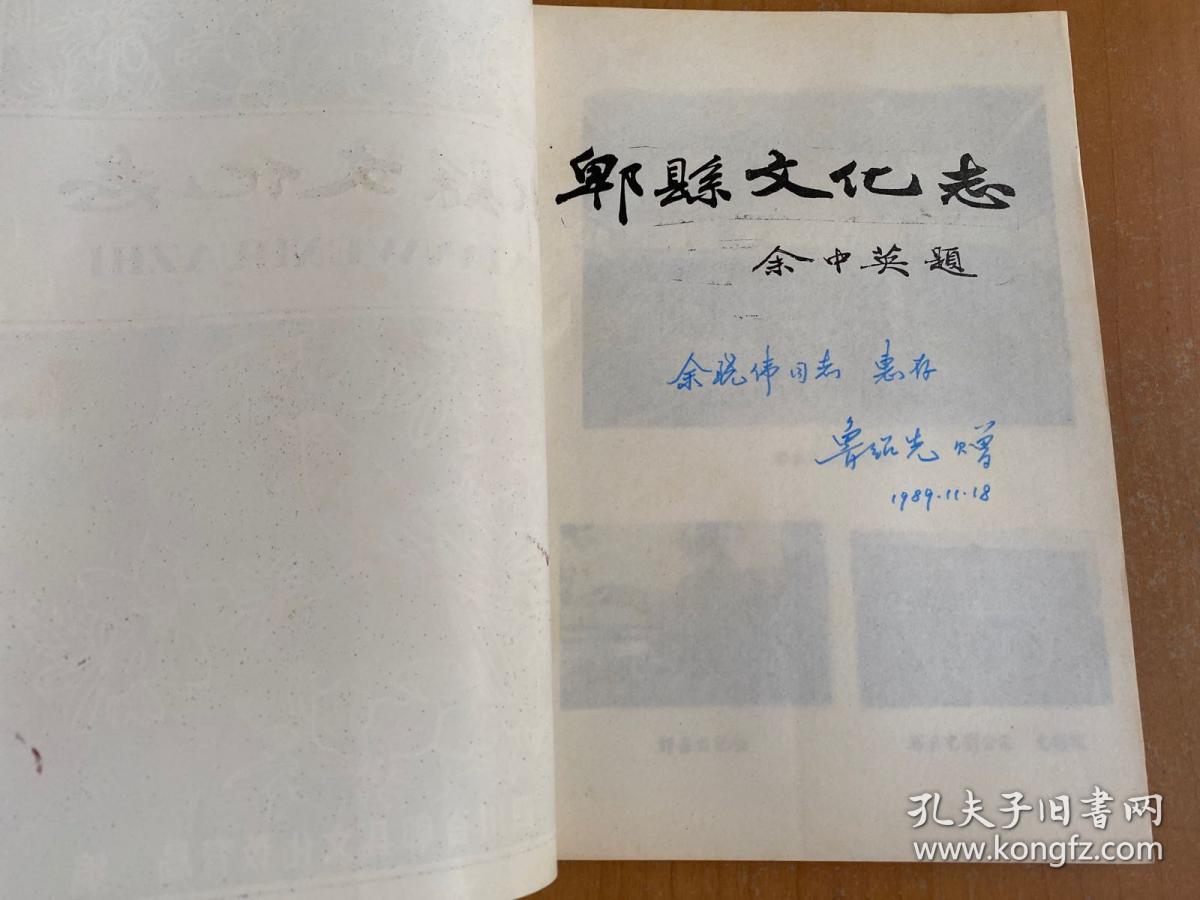 郫縣文化志
余中英題
余晓伟同志 惠存
鲁绍先 赠
1989.11.18
孔夫子旧书网
www.kongfz.com